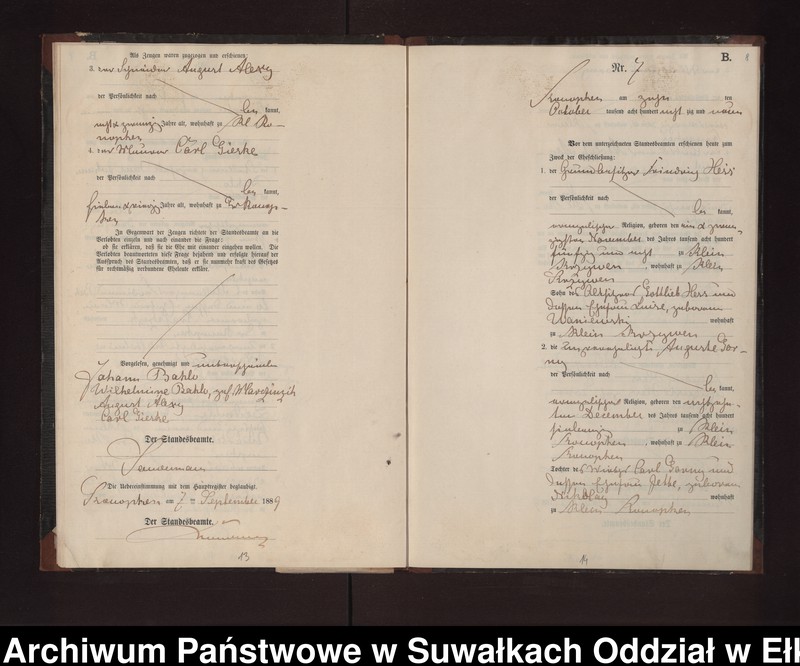 Als Zeugen waren zugezogen und erschienen:
3. der Schneider August Alexy
der Persönlichkeit nach
kannt,
acht & zwanzig Jahre alt, wohnhaft zu Kl. Ko-
nopken
4. der Maurer Carl Gierke
der Persönlichkeit nach
kannt,
Jahre alt, wohnhaft zu Gr Konop-
ken
In Gegenwart der Zeugen richtete der Standesbeamte an die
Verlobten einzeln und nach einander die Frage:
ob sie erklären, daß sie die Ehe mit einander eingehen wollen. Die
Verlobten beantworteten diese Frage bejahend und erfolgte hierauf der
Ausspruch des Standesbeamten, daß er sie nunmehr kraft des Gesetzes
für rechtmäßig verbundene Eheleute erkläre.
Vorgelesen, genehmigt und unterschrieben
Johann Bahlo
Wilhelmine Bahlo, geb
August Alexy
Carl Gierke
Der Standesbeamte.
Die Uebereinstimmung mit dem Hauptregister beglaubigt.
Konopken am 7 ten September 1889
Der Standesbeamte.
13
B.
Nr. 7
Konopken am zehn ten
October tausend acht hundert acht zig und neun
Vor dem unterzeichneten Standesbeamten erschienen heute zum
Zweck der Eheschließung:
1. der Grundbesitzer Friedrich Herr
der Persönlichkeit nach
kannt,
evangelischer Religion, geboren den ein & zwan-
zigsten November des Jahres tausend acht hundert
fünfzig und acht zu Klein
Rosynsen, wohnhaft zu Klein
Rosynsen
Sohn des Altsitzers Gottlieb Herr und
dessen Ehefrau Luise, geborenen
wohnhaft
zu Klein Rosynsen
2. die unverehelichte Auguste Gor-
ny
der Persönlichkeit nach
kannt,
evangelischer Religion, geboren den achtzehn-
ten December des Jahres tausend acht hundert
siebenzig zu Klein
Konopken, wohnhaft zu Klein
Konopken
Tochter des Wirths Carl Gorny und
dessen Ehefrau Jette, geborenen
Nikolay wohnhaft
zu Klein Konopken
14
Archiwum Państwowe w Suwałkach Oddział w Eł